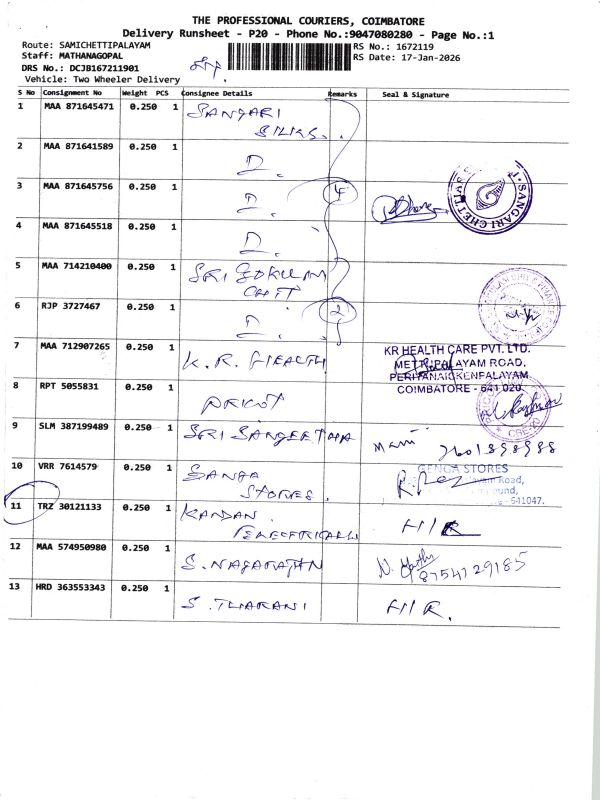 THE PROFESSIONAL COURIERS, COIMBATORE
Delivery Runsheet - P20 - Phone No.:9047080280 - Page No.:1
Route: SAMICHETTIPALAYAM
RS No.: 1672119
Staff: MATHANAGOPAL
RS Date: 17-Jan-2026
DRS No.: DCJB167211901
Vehicle: Two Wheeler Delivery
S No Consignment No Weight PCS Consignee Details Remarks Seal & Signature
1 MAA 871645471 0.250 1 SANGARI
SILKS.
2 MAA 871641589 0.250 1 D.
3 MAA 871645756 0.250 1 D. 4
SANGARI CHETTIAR
4 MAA 871645518 0.250 1 D.
5 MAA 714210400 0.250 1 SRI GOKULAM
CHIT
6 RJP 3727467 0.250 1 D. 2
7 MAA 712907265 0.250 1 K.R. HEALTH
KR HEALTH CARE PVT. LTD.
METTUPALAYAM ROAD,
PERIYANAICKENPALAYAM
COIMBATORE - 641 020
8 RPT 5055831 0.250 1
9 SLM 387199489 0.250 1 SRI SANGEETHA Mani
10 VRR 7614579 0.250 1 GANGA
STORES.
GENGA STORES
Road,
- 641047.
11 TRZ 30121133 0.250 1 KANDAN
ELECTRICALS H/R
12 MAA 574950980 0.250 1 S. NAGARATHN
8754129185
13 HRD 363553343 0.250 1 S. THARANI H/R.